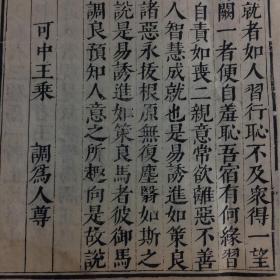 就者如人習行恥不及衆得一望
關一者便自羞恥吾宿有何緣習
自責如喪二親意常欲離惡不善
人智慧成就也是易誘進如策良
諸惡永拔根原無復塵翳如斯之
說是易誘進如策良馬者彼御馬
調良預知人意之所趣向是故說
可中王乘　調為人尊